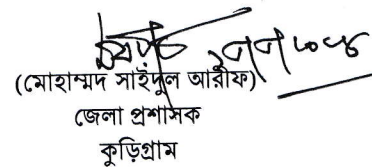 (মোহাম্মদ সাইদুল আরীফ)
জেলা প্রশাসক
কুড়িগ্রাম